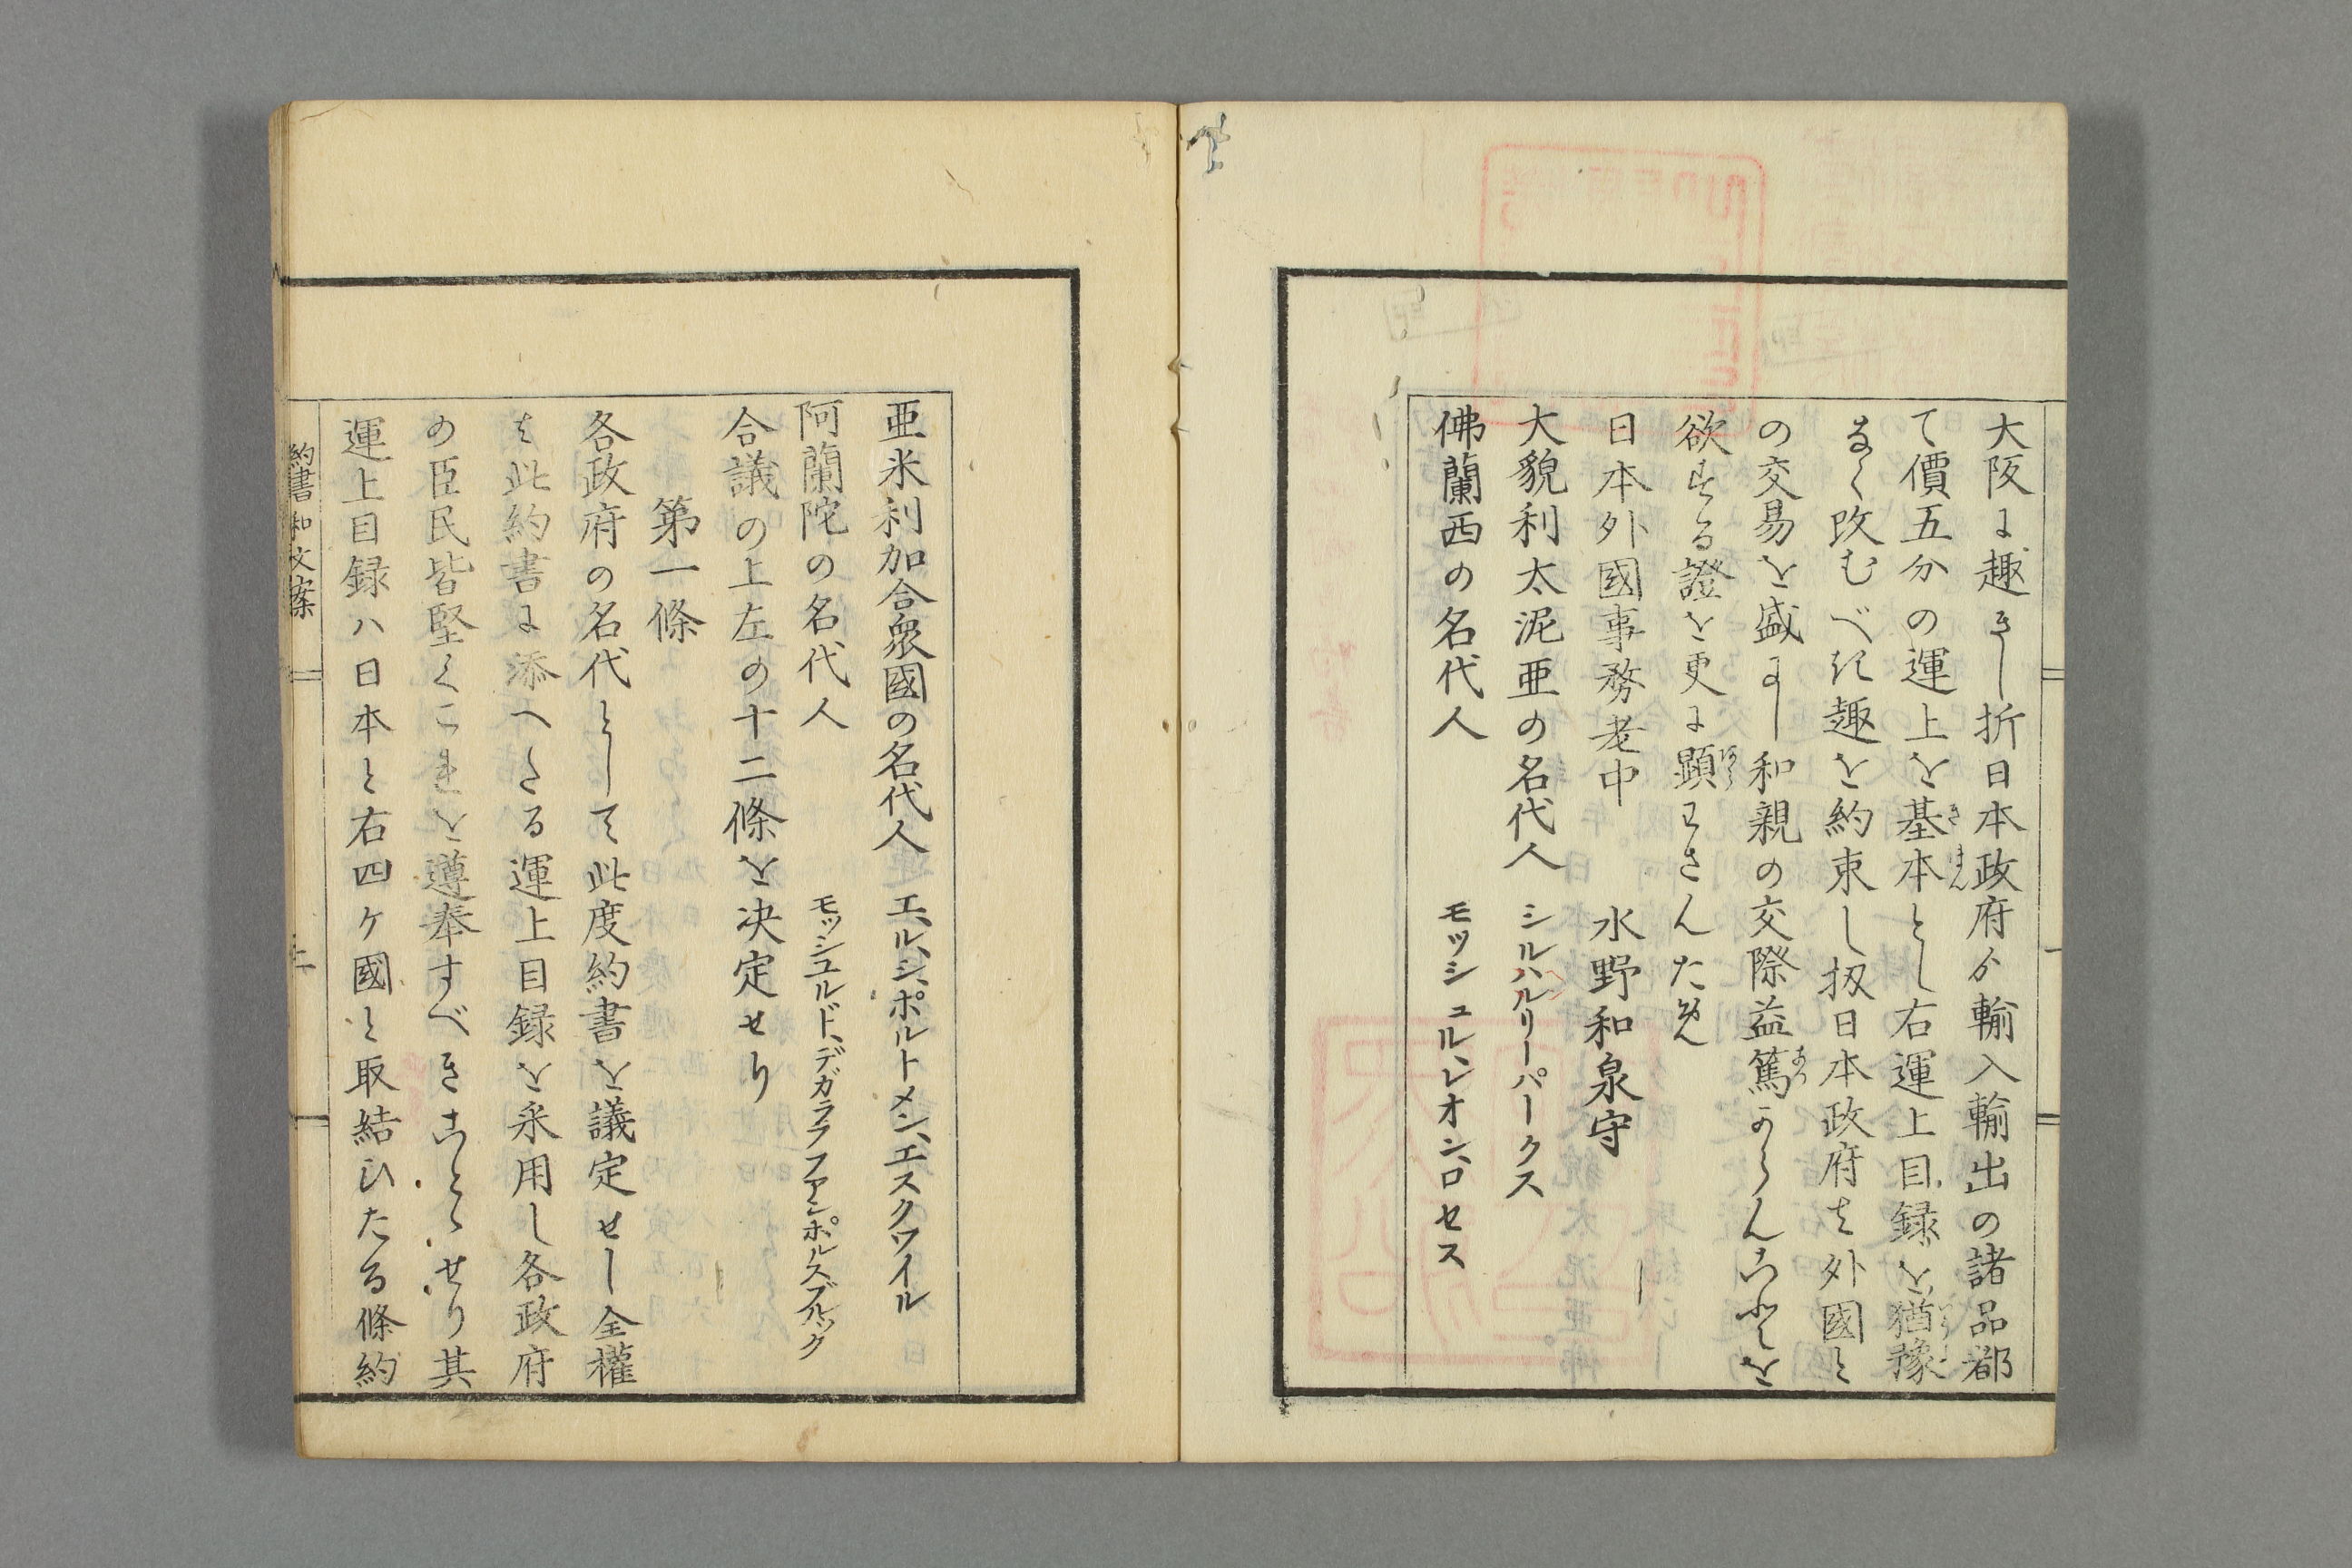 大阪に趣きし折日本政府ゟ輸入輸出の諸品都
て價五分の運上を基本とし右運上目録を猶豫
なく改むべき趣を約束し扨日本政府は外國と
の交易を盛にし和親の交際益篤からんことを
欲する證を更に顕わさんため
日本外國事務老中 水野和泉守
大貌利太泥亜の名代人 シルハルリーパークス
佛蘭西の名代人 モッシュル、レオン、ロセス
亜米利加合衆國の名代人 エ、ル、シ、ポルトメン、エスクワイル
阿蘭陀の名代人 モッシユルド、デガララフアンポルスブルック
合議の上左の十二條を決定せり
第一條
各政府の名代として此度約書を議定せし全權
は此約書に添へたる運上目録を采用し各政府
の臣民皆堅くこれを遵奉すべきことゝせり其
運上目録ハ日本と右四ケ國と取結ひたる條約
約書和文案